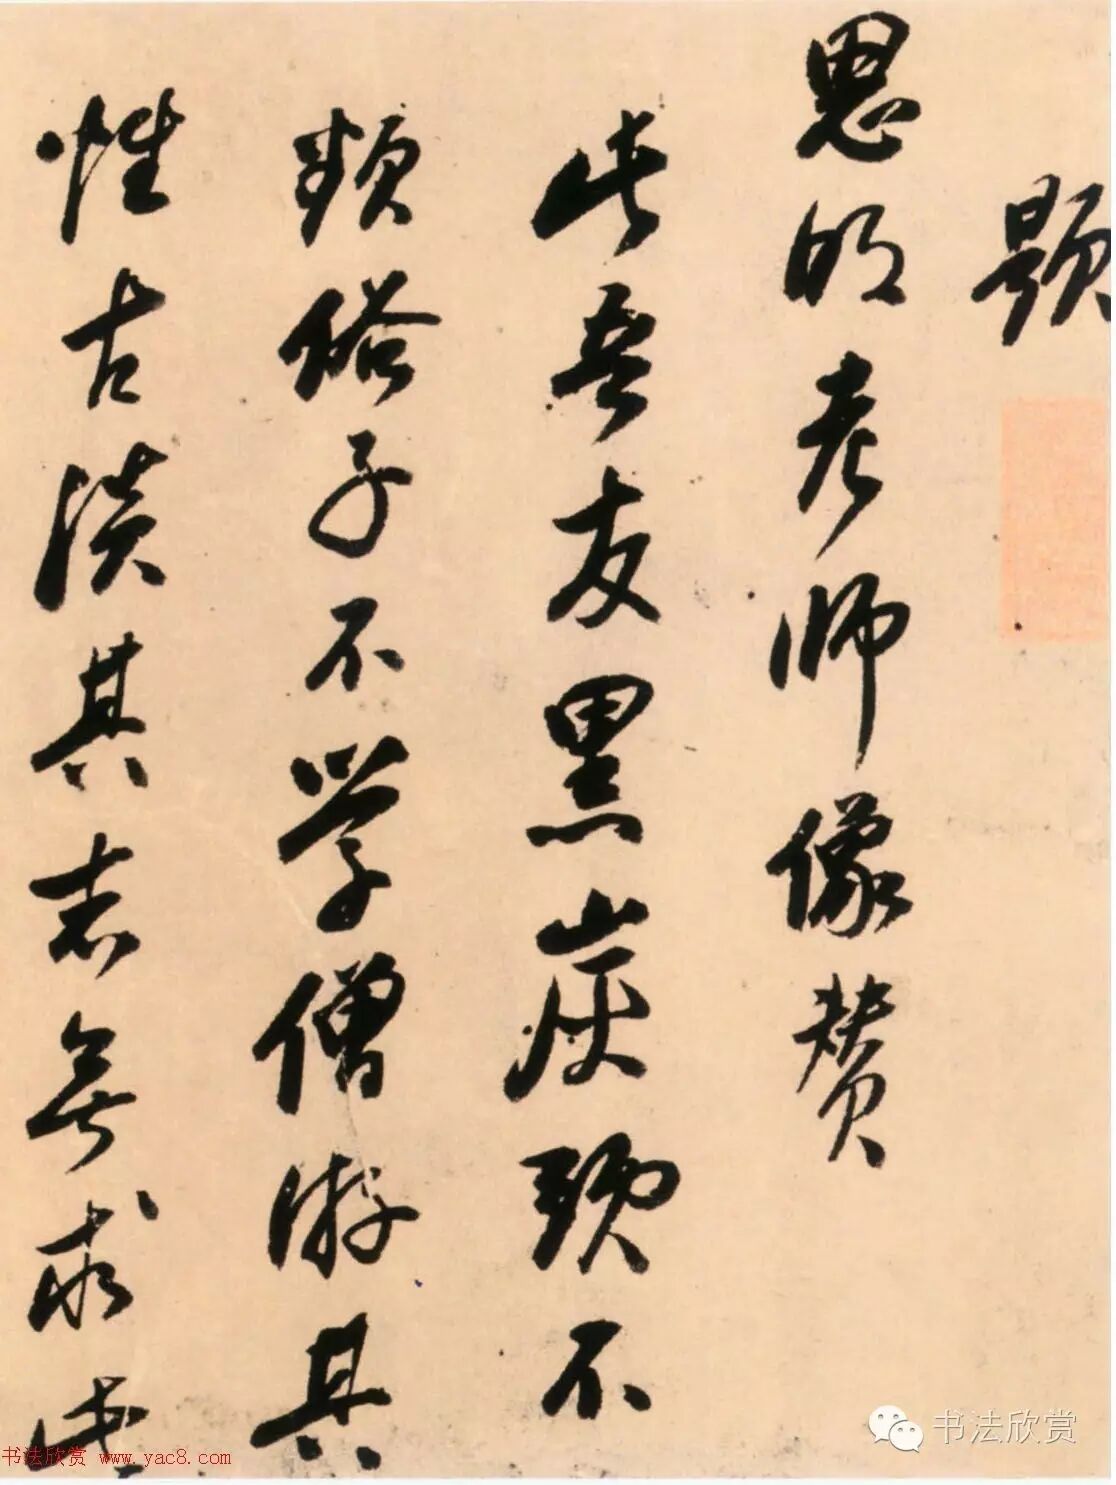 题
思明老师像赞
此吾友黑炭头不
类俗子不学僧游其
性古淡其志无求
书法欣赏
书法欣赏 www.yac8.com